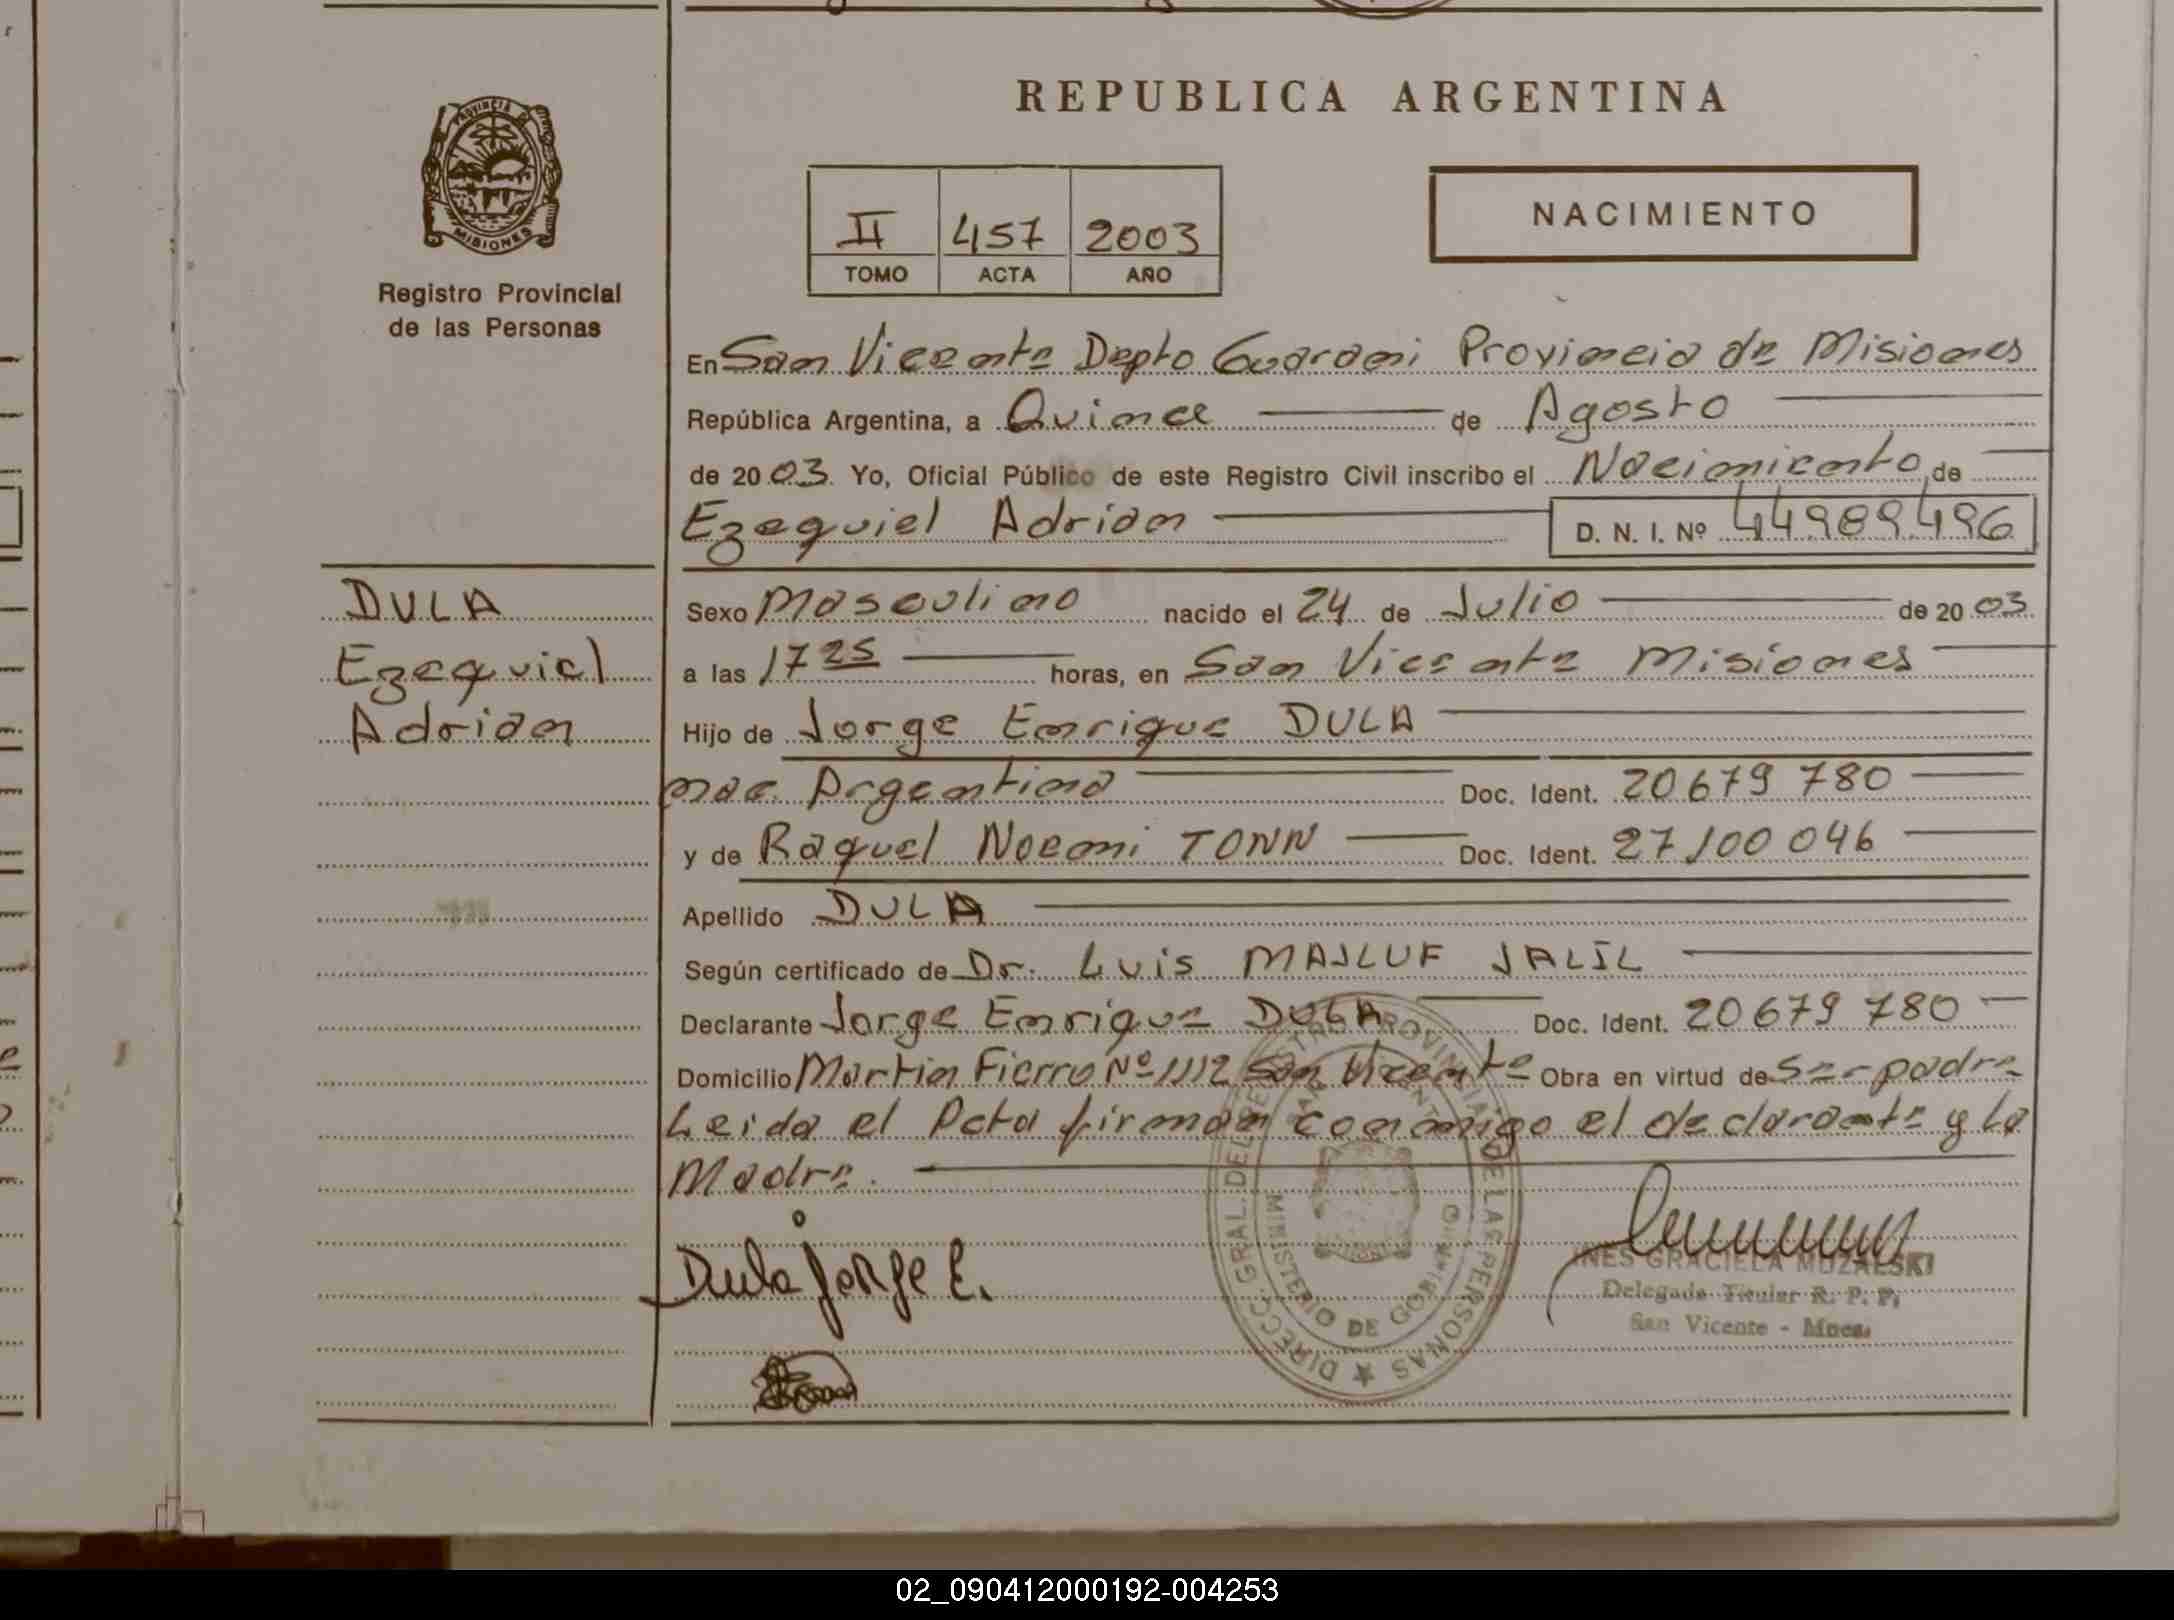 REPUBLICA ARGENTINA
PROVINCIA DE
MISIONES
Registro Provincial
de las Personas
II 457 2003
TOMO ACTA AÑO
NACIMIENTO
En San Vicente Depto Guarani Provincia de Misiones
República Argentina, a Quince de Agosto
de 2003. Yo, Oficial Público de este Registro Civil inscribo el Nacimiento de
Ezequiel Adrian D. N. I. Nº 44989496
DULA
Ezequiel
Adrian
Sexo Masculino nacido el 24 de Julio de 2003
a las 17 25 horas, en San Vicente Misiones
Hijo de Jorge Enrique DULA
nac. Argentina Doc. Ident. 20 679 780
y de Raquel Noemi TONN Doc. Ident. 27 100 046
Apellido DULA
Según certificado de Dr. Luis MAJLUF JALIL
Declarante Jorge Enrique DULA Doc. Ident. 20 679 780
Domicilio Martin Fierro Nº 1112 San Vicente Obra en virtud de Ser padre
Leida el Acta firman conmigo el declarante y La
Madre.
Dula Jorge E.
DIRECC. GRAL. DEL REGISTRO PROVINCIAL DE LAS PERSONAS
MINISTERIO DE GOBIERNO
INES GRACIELA MUZALSKI
Delegada Titular R. P. P.
San Vicente - Mnes.
02_090412000192-004253